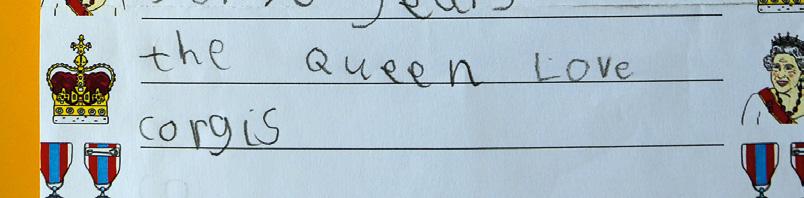 years
the Queen Love
corgis